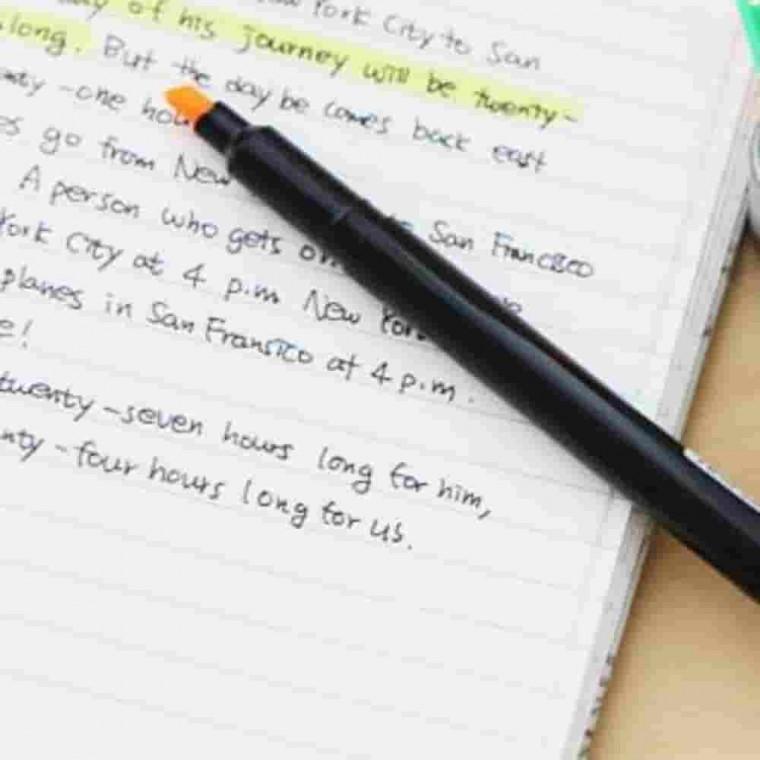 York City to San
of his journey will be twenty-
long. But the day be comes back east
-one hou
go from New San Francisco
A person who gets on
York City at 4 p.m New York
planes in San Fransico at 4 p.m.
e!
twenty-seven hours long for him,
nty-four hours long for us.